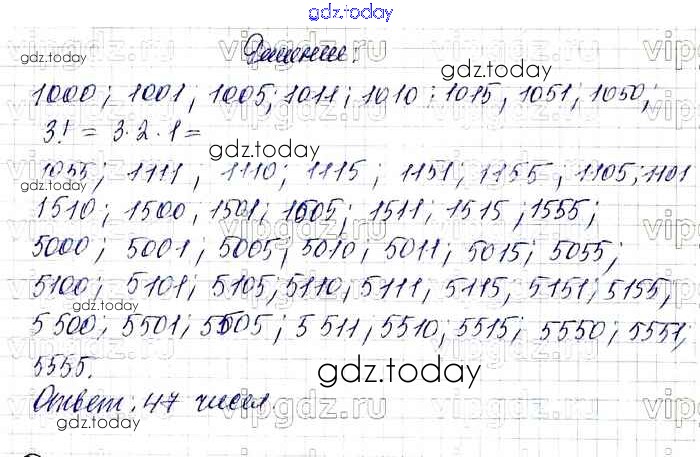 gdz.today
Решение:
gdz.today
1000; 1001; 1005; 1011; 1010; 1015, 1051; 1050;
3! = 3·2·1=
gdz.today
1055; 1111, 1110; 1115; 1151; 1155, 1105; 1101
1510; 1500, 1501; 1505; 1511; 1515; 1555;
gdz.today
5000; 5001; 5005; 5010; 5011; 5015; 5055;
5100; 5101; 5105; 5110; 5111; 5115, 5151; 5155,
gdz.today
5500; 5501; 5505; 5511, 5510; 5515; 5550; 5551,
5555.
gdz.today
Ответ: 47 чисел.
gdz.today
vipgdz.ru